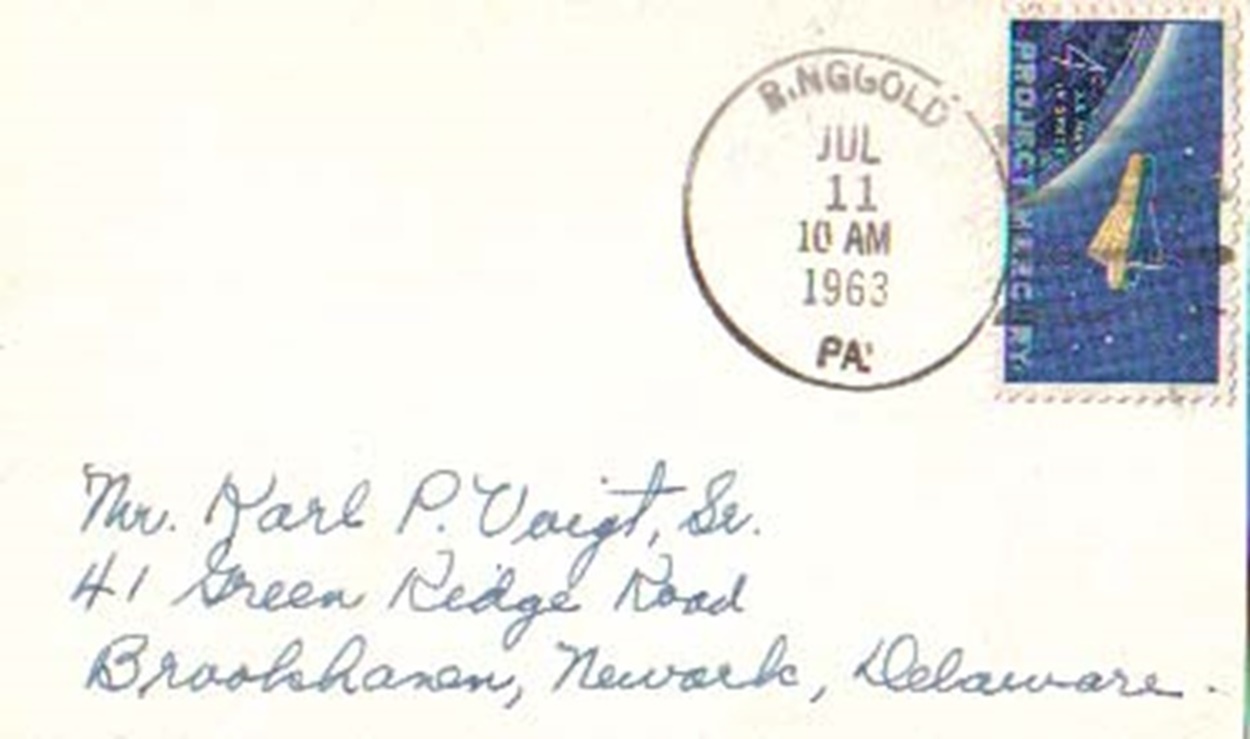 RINGGOLD
JUL
11
10 AM
1963
PA.
PROJECT MERCURY
4¢
U.S. MAN
IN SPACE
Mr. Karl P. Voigt, Sr.
41 Green Ridge Road
Brookhaven, Newark, Delaware.